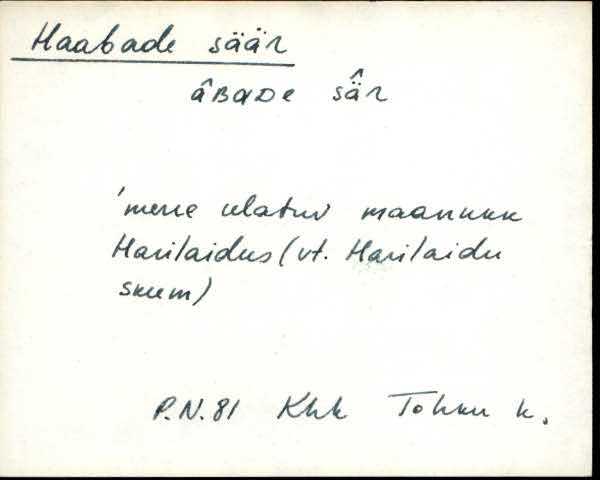 Haabade säär
âBaDe sä̂r
'merre ulatuv maanukk
Harilaidus (vt. Harilaidu
skeem)
P.N.81 Khk Tohku k.